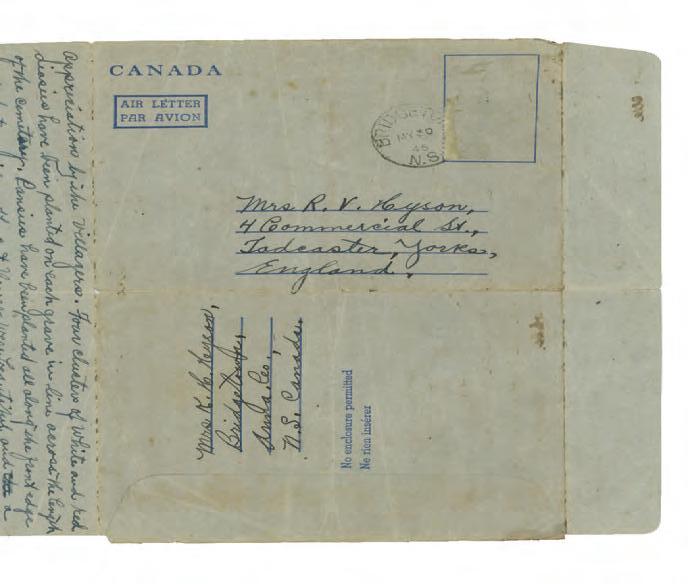 CANADA
AIR LETTER
PAR AVION
MY 30
N.S.
Mrs R. V. Hyson,
4 Commercial St.,
Tadcaster, Yorks,
England.
Mrs. K. H. Hyson,
Bridgetown,
Anna. Co.,
N.S. Canada.
No enclosure permitted
Ne rien insérer
Appreciations by the Villagers. Four clusters of White and red
have been planted on each grave in line across the length
of the cemetery. Pansies have been planted all along the front edge
and a